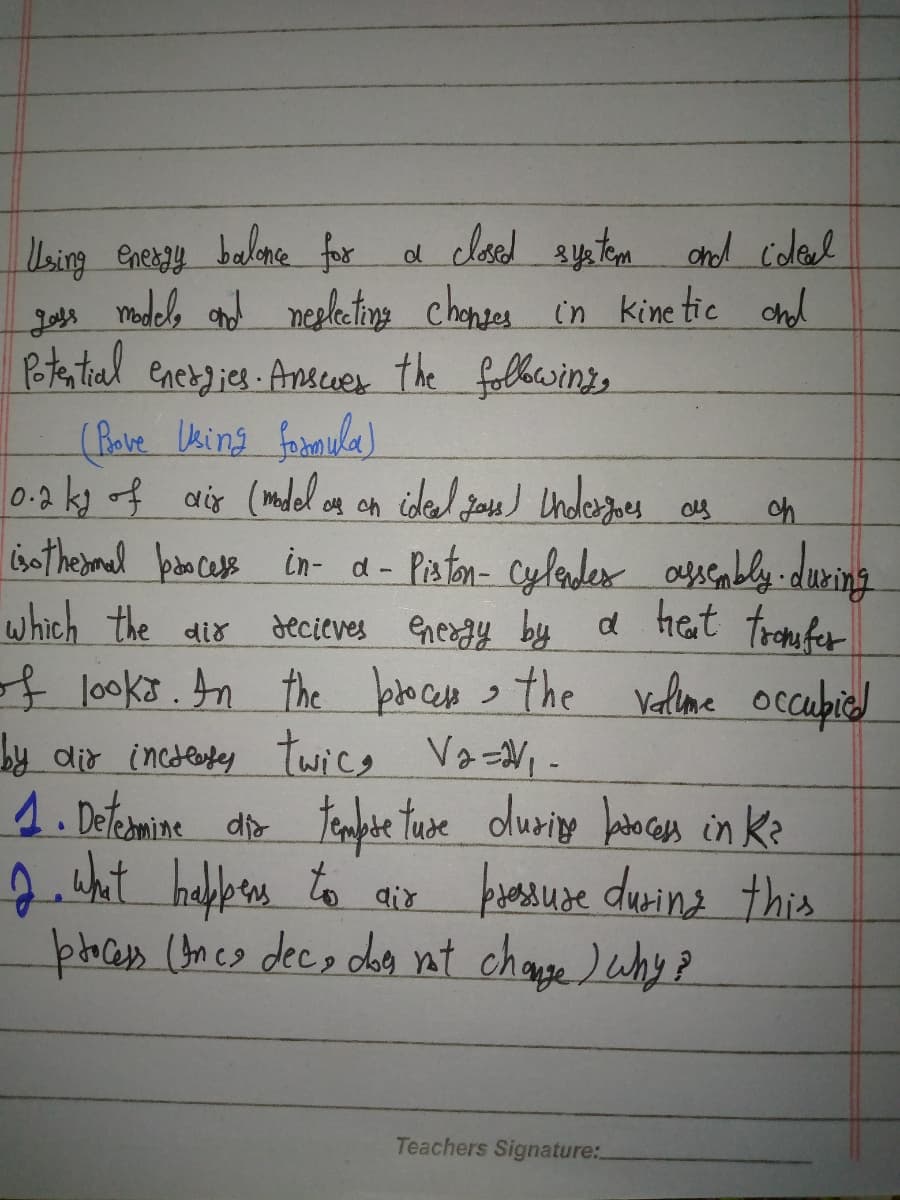 Using energy balance for a closed system and ideal
gass model, and neglecting changes in kinetic and
Potential energies. Answer the following,
(Prove Using formula)
0.2 kg of air (model as an ideal gass) Undergoes as an
isothermal process in- a - Piston- cylender assembly. during
which the air recieves energy by a heat transfer
of 100kJ. In the process, the volume occupied
by air increases twice V2=2V1 -
1. Determine air tempreture during process in K?
2. What happens to air pressure during this
process (Inc, dec, does not change) why?
Teachers Signature: